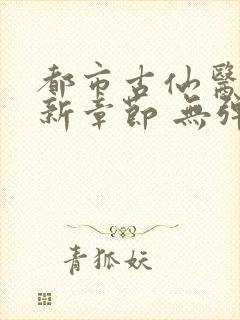 都市古仙醫
新章節 無彈
青狐妖